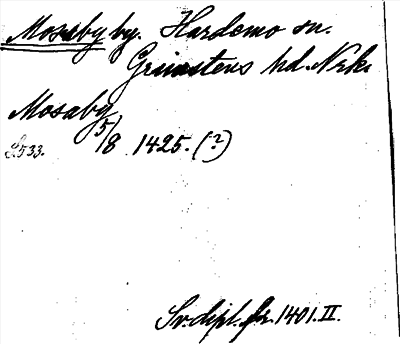 Mosaby by. Hardemo sn.
Grimstens hd. Nrke
Mosaby
5/8 1425. (?)
533.
Sv. dipl. fr. 1401. II.